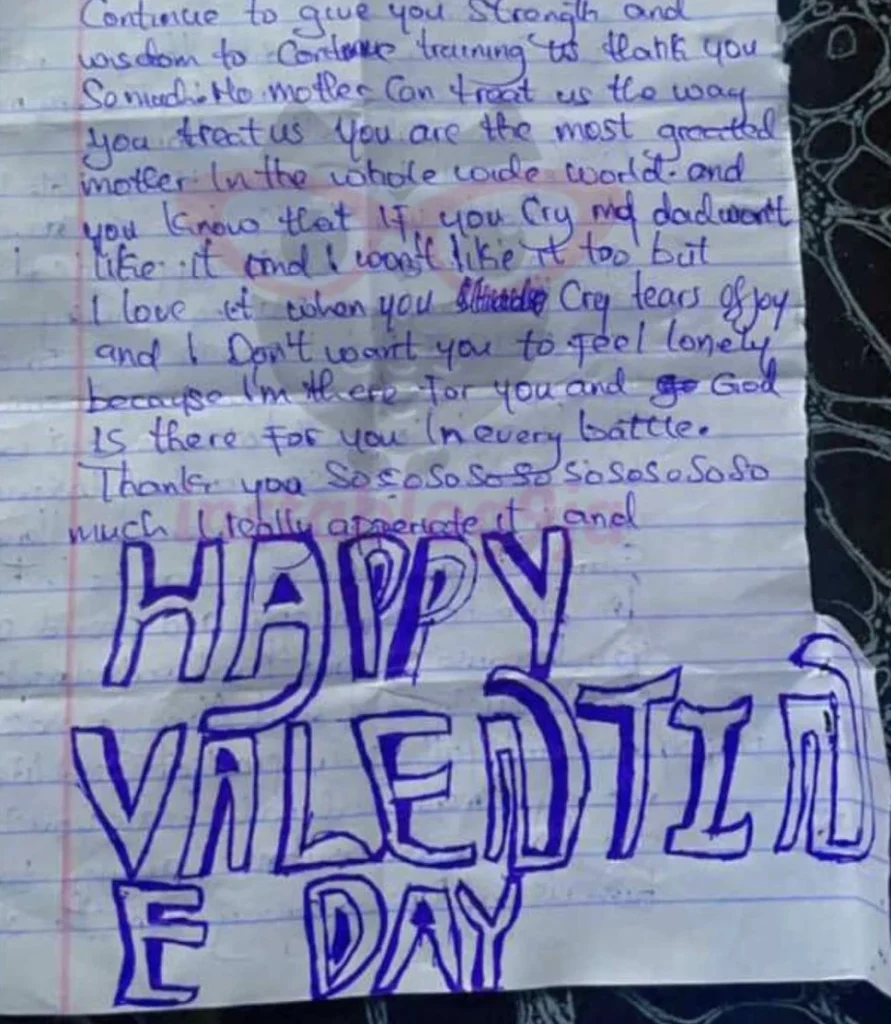 Continue to give you Strength and
wisdom to Continue training us thank you
So much. No mother Can treat us the way
you treat us you are the most greatted
mother In the whole wide world. and
you know that If you Cry my dad won't
like it and I won't like it too but
I love it when you Cry tears of joy
and I Don't want you to feel lonely
because I'm there for you and God
Is there For you In every battle.
Thank you So so So So So So So So So So
much I really appreciate it and
HAPPY
VALENTIN
E DAY